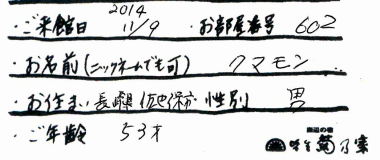 ・ご来館日 2014 11/9 ・お部屋番号 602
・お名前(ニックネームでも可) クマモン
・お住まい 長崎県 佐世保市 性別 男
・ご年齢 53才
海辺の宿
菊乃家